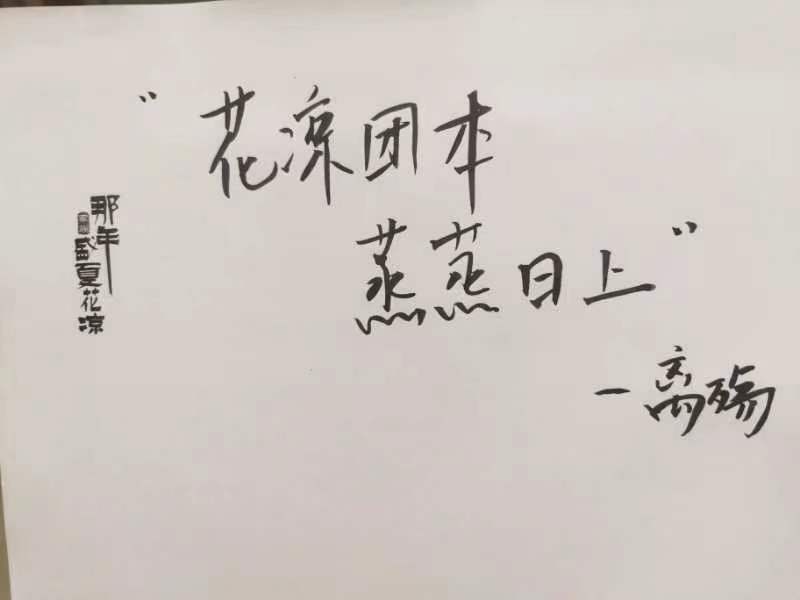 “花凉团本
蒸蒸日上”
一离殇
那年
盛夏花凉